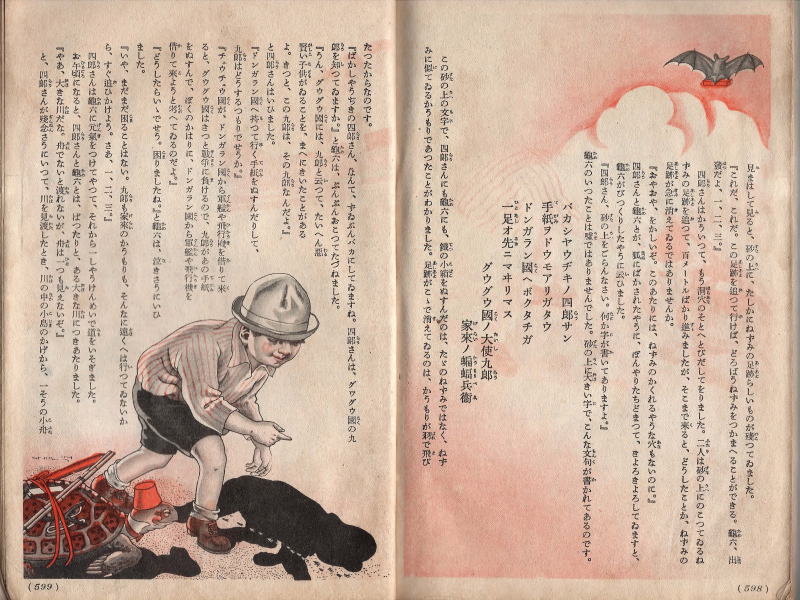 見まはして見ると、砂の上に、たしかにねずみの足跡らしいものが殘つてゐました。
『これだ、これだ。この足跡を追つて行けば、どろばうねずみをつかまへることができる。龜六、出
發だよ、一、二、三。』
四郎さんはかういつて、もう洞穴のそとへとびだしてをりました。二人は砂の上にのこつてゐるね
ずみの足跡を追つて、百メートルばかり進みましたが、そこまで來ると、どうしたことか、ねずみの
足跡が急に消えてゐるではありませんか。
『おやおや、をかしいぞ。このあたりには、ねずみのかくれるやうな穴もないのに。』
四郎さんと龜六とが、狐にばかされたやうに、ぼんやりたちどまつて、きよろきよろしてゐますと、
龜六がびつくりしたやうに云ひました。
『四郎さん、砂の上をごらんなさい。何か字が書いてありますよ。』
龜六のいつたことは嘘ではありませんでした。砂の上に大きい字で、こんな文句が書かれてあるのです。
バカシヤウヂキノ四郎サン
手紙ヲドウモアリガタウ
ドンガラン國ヘボクタチガ
一足オ先ニマヰリマス
グウグウ國ノ大使九郎
家來ノ蝙蝠兵衞
この砂の上の文字で、四郎さんにも龜六にも、鐵の小箱をぬすんだのは、たゞのねずみではなく、ねず
みに似てゐるかうもりであつたことがわかりました。足跡がこゝで消えてゐるのは、かうもりが羽で飛び
(598)
たつたからなのです。
『ばかしやうぢきの四郎さん、なんて、ずゐぶんバカにしてゐますね。四郎さんは、グウグウ國の九
郎を知つてゐますか。』と龜六は、ぷんぷんおこつてたづねました。
『うん、グウグウ國には、九郎と云つて、たいへん惡
賢い子供がゐることを、まへにきいたことがある
よ。きつと、この九郎は、その九郎なんだよ。』
と四郎さんはいひました。
『ドンガラン國へ持つて行く手紙をぬすんだりして、
九郎はどうするつもりでせうか。』
『チウチウ國が、ドンガラン國から軍艦や飛行機を借りて來
ると、グウグウ國はきつと戰爭に負けるので、九郎があの手紙
をぬすんで、ぼくのかはりに、ドンガラン國か軍艦や飛行機を
借りて來ようと考へてゐるのだよ。』
『どうしたらいゝでせう。困りましたね。』と龜六は、泣きさうにいひ
ました。
『いや、まだまだ困ることはない。九郎も家來のかうもりも、そんなに遠くへは行つてゐないか
ら、すぐ追ひかけよう。さあ、一、二、三。』
四郎さんは龜六に元氣をつけてやつて、それから一しやうけんめいで道をいそぎました。
お午頃になると、四郎さんと龜六とは、ばつたりと、ある大きな川につきあたりました。
『やあ、大きな川だな。舟でないと渡れないが、舟は一つも見えないぞ。』
と、四郎さんが殘念さうにいつて、川を見渡したとき、川の中の小島のかげから、一そうの小舟
(599)